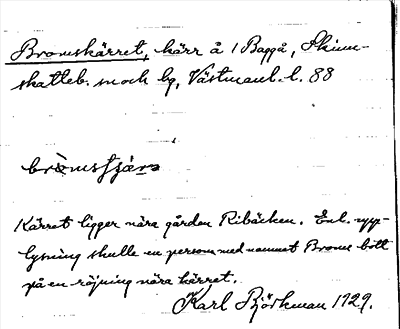 Bromskärret, kärr å 1 Baggå, Skinn-
skatteb. sn och bg, Västmanl. l. 88
Kärret ligger nära gården Ribäcken. Enl. upp-
lysning skulle en person med namnet Broms bott
på en röjning nära kärret.
Karl Björkman 1929.